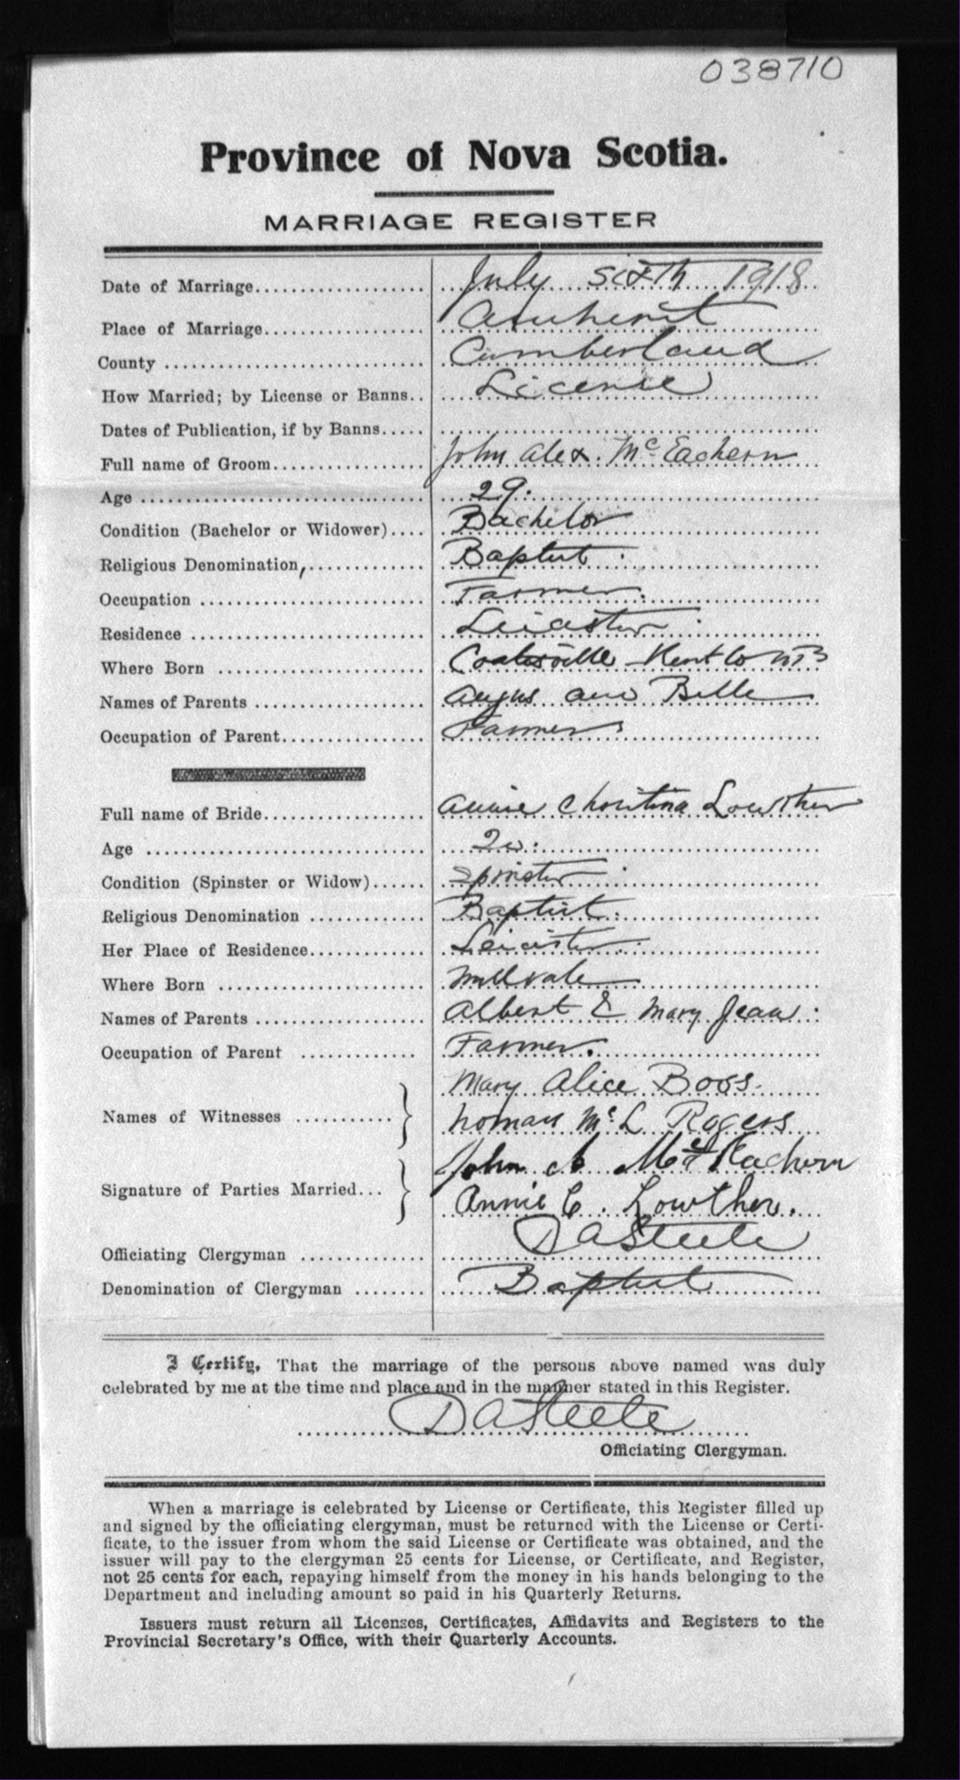 038710
Province of Nova Scotia.
MARRIAGE REGISTER
Date of Marriage.................... July sixth 1918
Place of Marriage................... Amherst
County ............................. Cumberland
How Married; by License or Banns.. License
Dates of Publication, if by Banns.....
Full name of Groom.................. John Alex. McEachern
Age ................................ 29.
Condition (Bachelor or Widower).... Bachelor
Religious Denomination, ............ Baptist
Occupation ......................... Farmer
Residence .......................... Leicester
Where Born ......................... Coatesville Kent Co NB
Names of Parents ................... Angus and Belle
Occupation of Parent................ Farmer
Full name of Bride.................. Annie Christina Lowther
Age ................................ 20.
Condition (Spinster or Widow)...... Spinster
Religious Denomination ............. Baptist.
Her Place of Residence.............. Leicester
Where Born ......................... Millvale
Names of Parents ................... Albert & Mary Jean
Occupation of Parent ............... Farmer.
Mary Alice Boss.
Names of Witnesses ........... }
Norman McL Rogers
John A McEachern
Signature of Parties Married... }
Annie C. Lowther.
Officiating Clergyman ............. DASteele
Denomination of Clergyman ........ Baptist
I Certify, That the marriage of the persons above named was duly
celebrated by me at the time and place and in the manner stated in this Register.
DASteele
Officiating Clergyman.
When a marriage is celebrated by License or Certificate, this Register filled up
and signed by the officiating clergyman, must be returned with the License or Certi-
ficate, to the issuer from whom the said License or Certificate was obtained, and the
issuer will pay to the clergyman 25 cents for License, or Certificate, and Register,
not 25 cents for each, repaying himself from the money in his hands belonging to the
Department and including amount so paid in his Quarterly Returns.
Issuers must return all Licenses, Certificates, Affidavits and Registers to the
Provincial Secretary's Office, with their Quarterly Accounts.